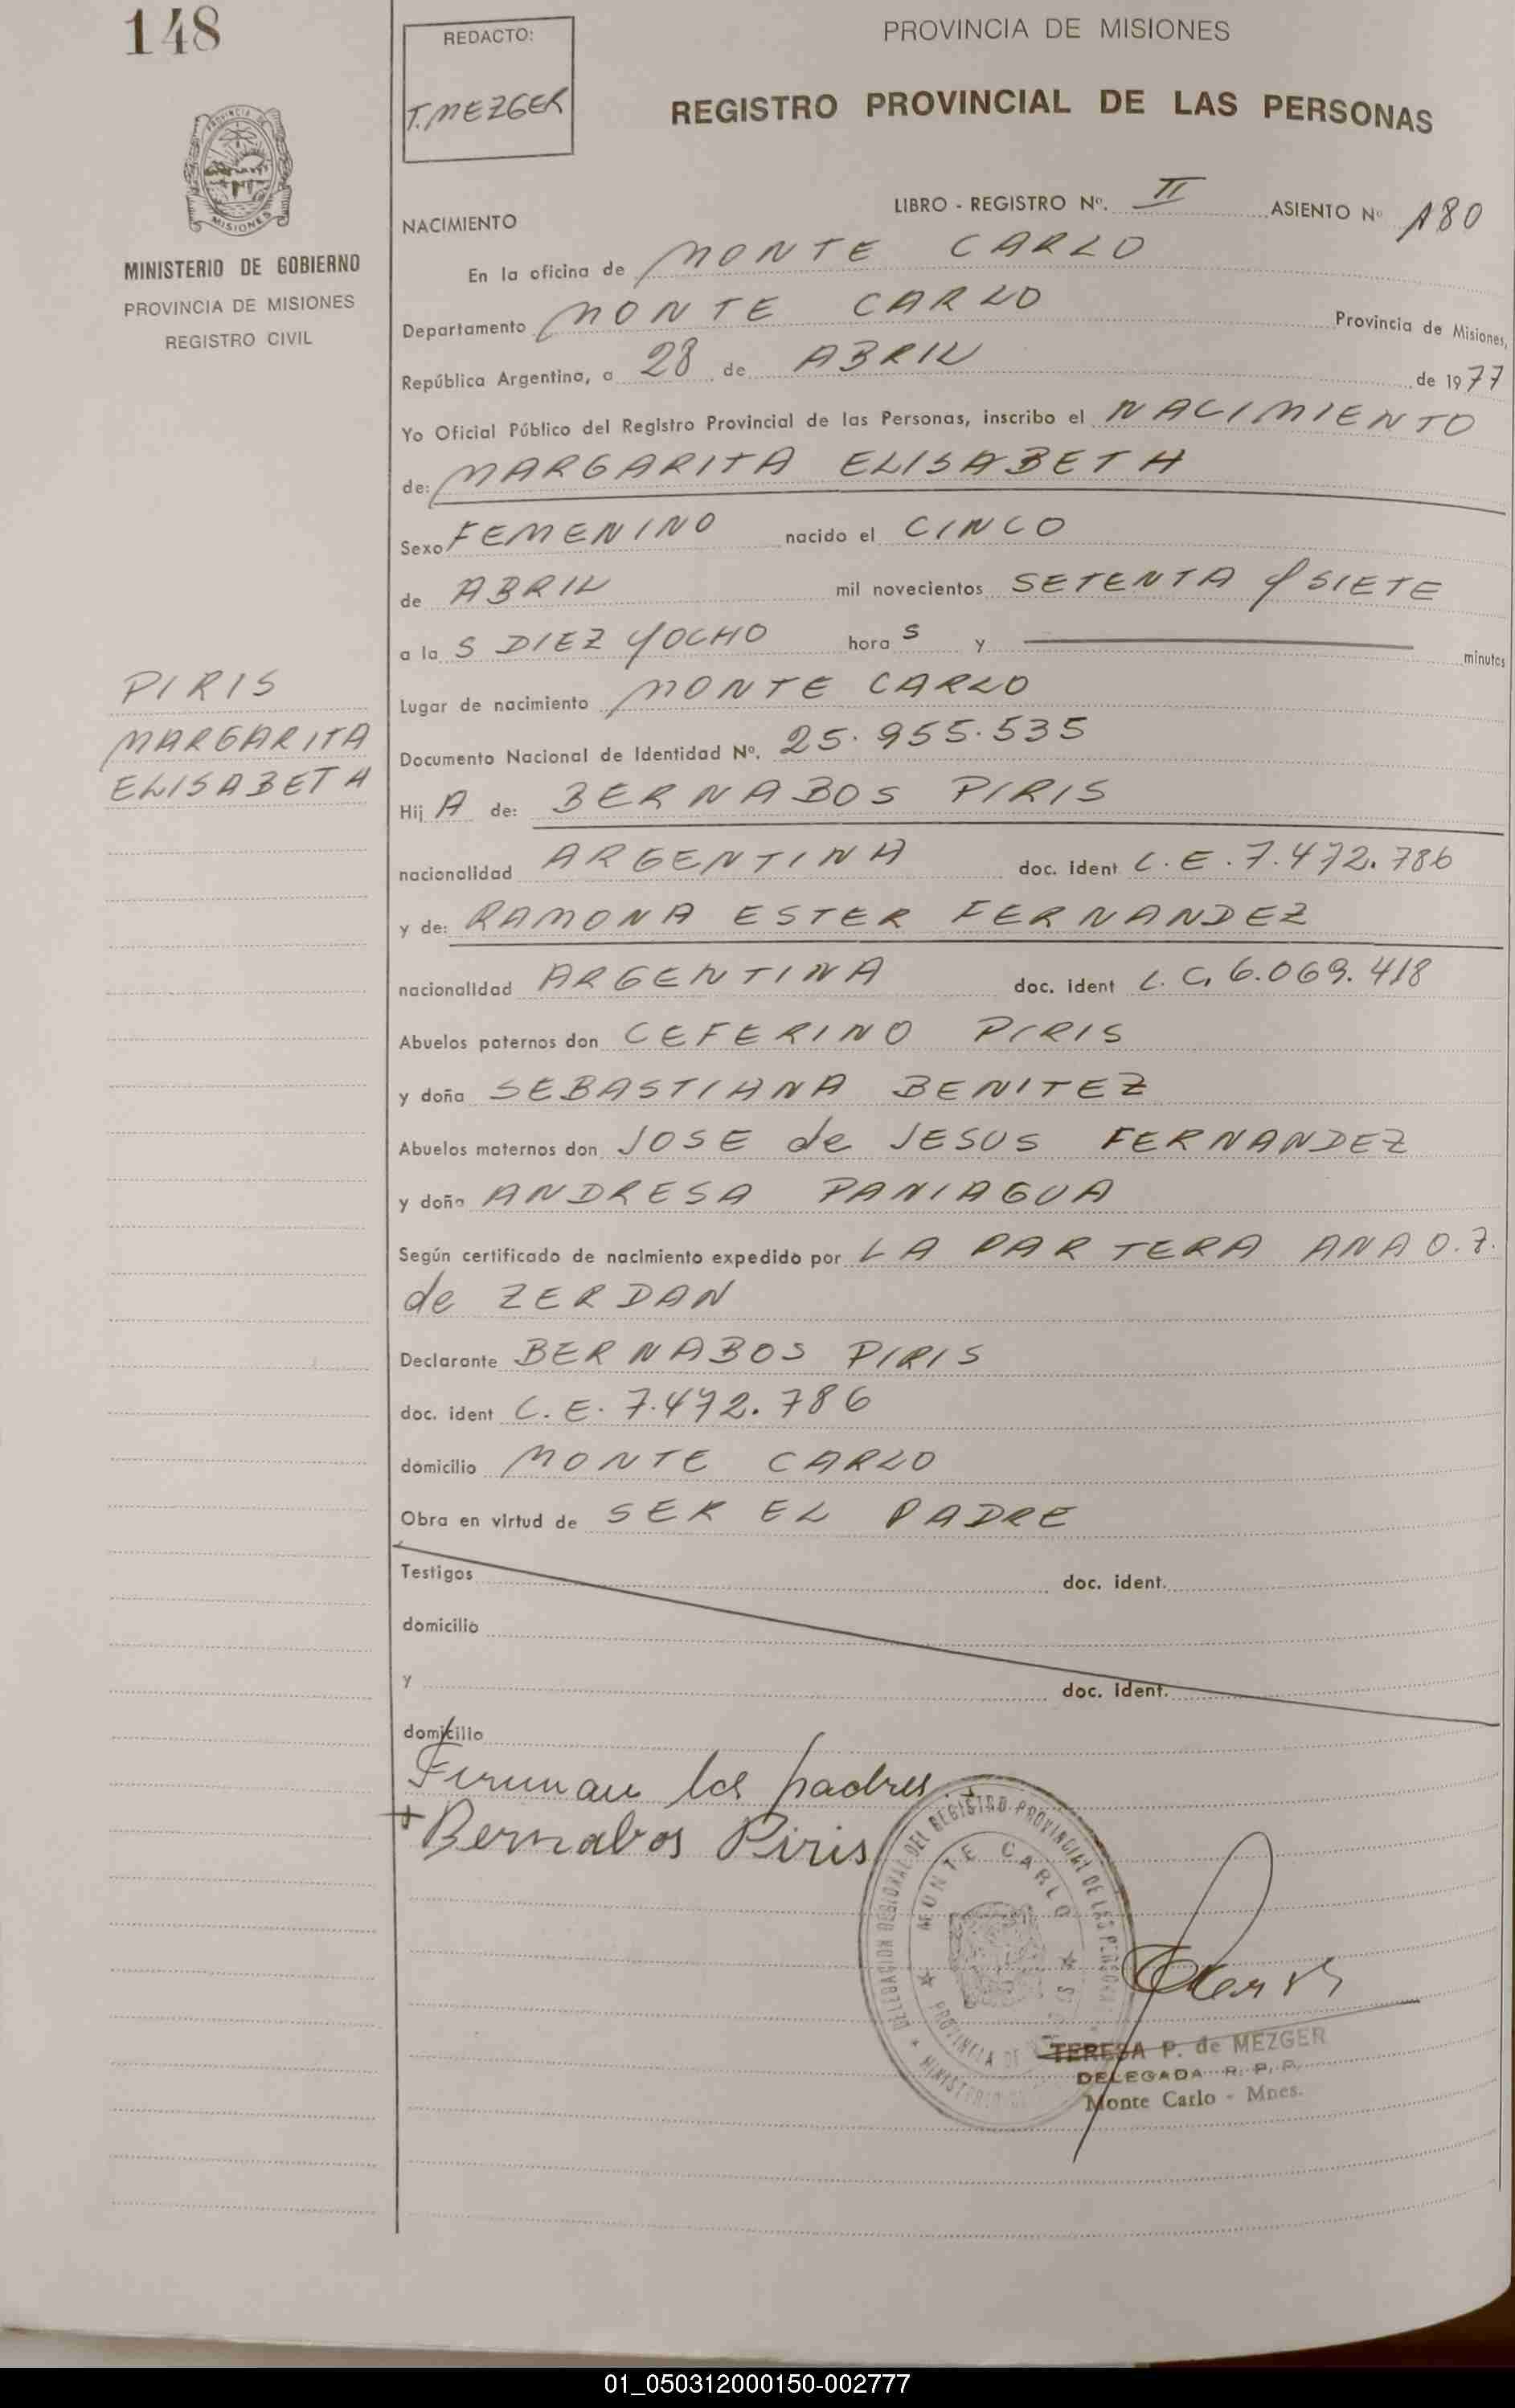 148
REDACTO:
T. MEZGER
PROVINCIA DE MISIONES
REGISTRO PROVINCIAL DE LAS PERSONAS
PROVINCIA DE
MISIONES
MINISTERIO DE GOBIERNO
PROVINCIA DE MISIONES
REGISTRO CIVIL
PIRIS
MARGARITA
ELISABETH
LIBRO - REGISTRO Nº. II ASIENTO Nº 180
NACIMIENTO
En la oficina de MONTE CARLO
Departamento MONTE CARLO Provincia de Misiones,
República Argentina, a 28 de ABRIL de 1977
Yo Oficial Público del Registro Provincial de las Personas, inscribo el NACIMIENTO
de: MARGARITA ELISABETH
Sexo FEMENINO nacido el CINCO
de ABRIL mil novecientos SETENTA y SIETE
a la S DIEZ Y OCHO hora S y minutos
Lugar de nacimiento MONTE CARLO
Documento Nacional de Identidad Nº. 25.955.535
Hij A de: BERNABOS PIRIS
nacionalidad ARGENTINA doc. ident C.E. 7.472.786
y de: RAMONA ESTER FERNANDEZ
nacionalidad ARGENTINA doc. ident L.C. 6.069.418
Abuelos paternos don CEFERINO PIRIS
y doña SEBASTIANA BENITEZ
Abuelos maternos don JOSE de JESUS FERNANDEZ
y doña ANDRESA PANIAGUA
Según certificado de nacimiento expedido por LA PARTERA ANA O. 7.
de ZERDAN
Declarante BERNABOS PIRIS
doc. ident C.E. 7.472.786
domicilio MONTE CARLO
Obra en virtud de SER EL PADRE
Testigos doc. ident.
domicilio
y doc. ident.
domicilio
Firman los padres
+ Bernabos Piris
DELEGACION REGIONAL DEL REGISTRO PROVINCIAL DE LAS PERSONAS
MONTE CARLO
PROVINCIA DE
MINISTERIO
TERESA P. de MEZGER
DELEGADA R. P. P.
Monte Carlo - Mnes.
01_050312000150-002777